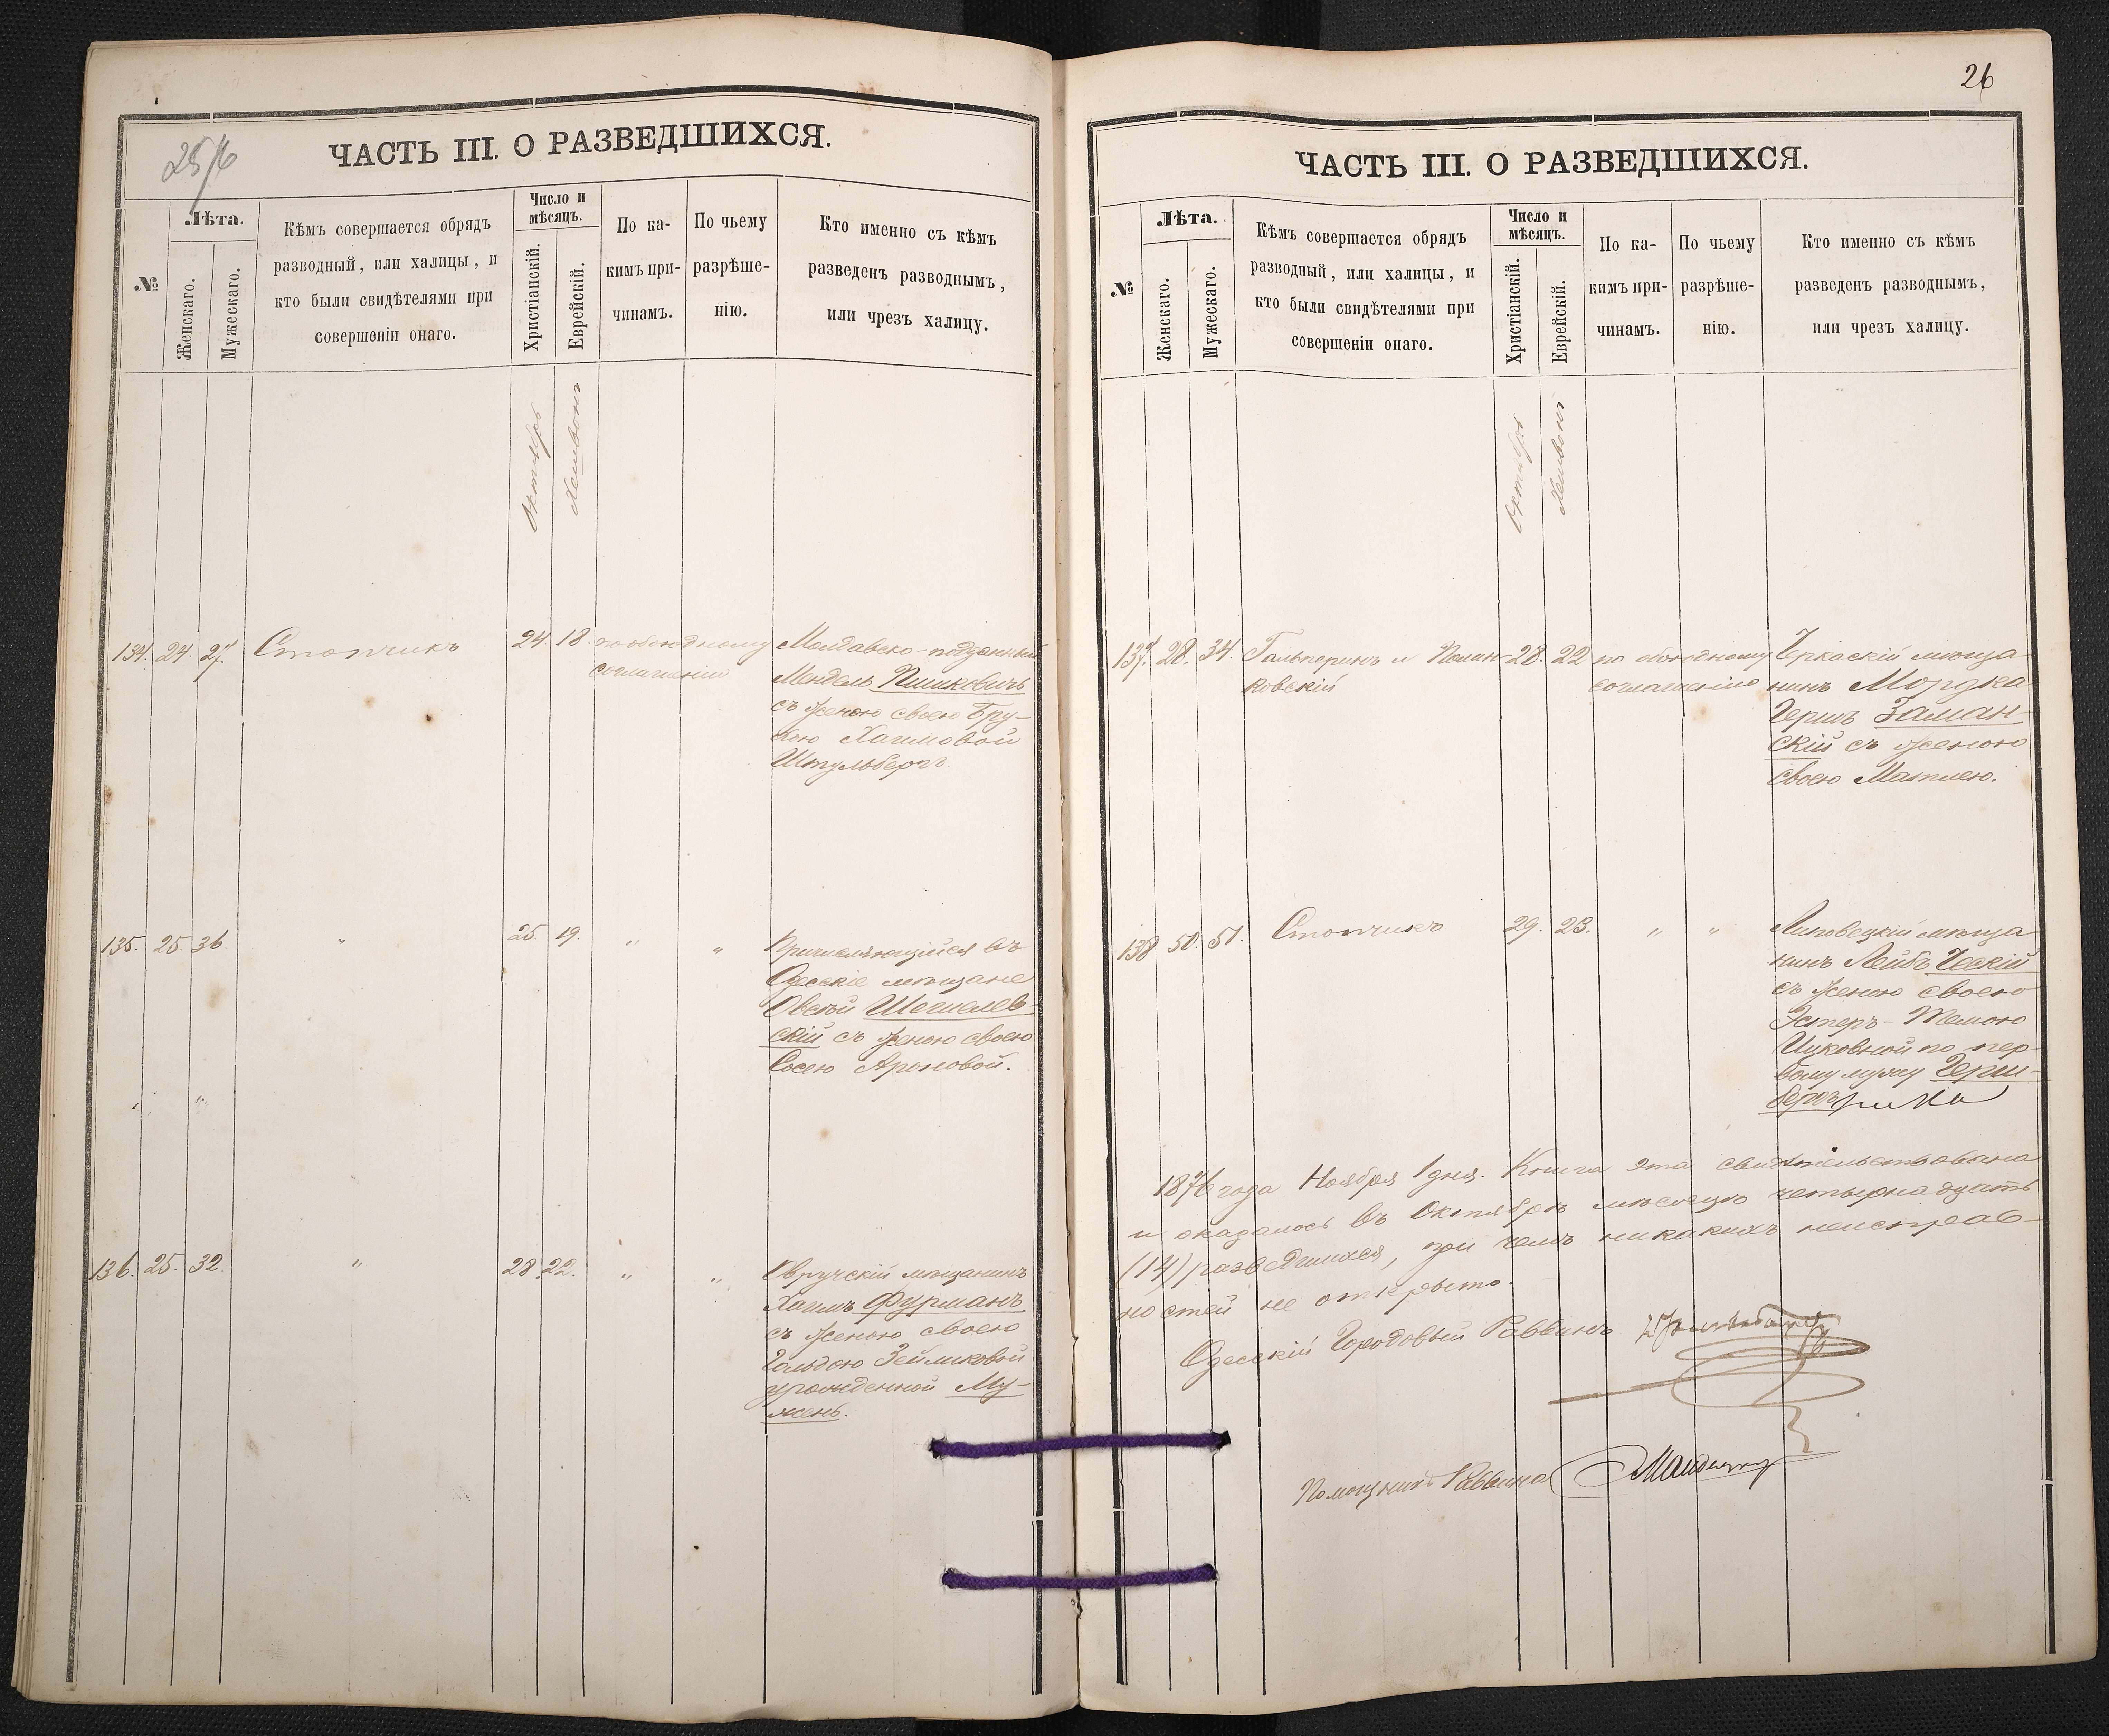 25/6
ЧАСТЬ III. О РАЗВЕДШИХСЯ.
№
Лѣта.
Женскаго.
Мужескаго.
Кѣмъ совершается обрядъ
разводный, или халицы, и
кто были свидѣтелями при
совершеніи онаго.
Число и
мѣсяцъ.
Христіанскій.
Еврейскій.
По ка-
кимъ при-
чинамъ.
По чьему
разрѣше-
нію.
Кто именно съ кѣмъ
разведенъ разводнымъ,
или чрезъ халицу.
Октябрь
Хешвонъ
134. 24. 27. Стопчикъ 24 18. по обоюдному
согласію
Молдавско-подданный
Мендель Пинковичъ
съ женою своею Бру-
хою Хаимовой
Штульбергъ.
135. 25. 36. " 25. 19. " "
Причисляющійся въ
Одесскіе мѣщане
Овсѣй Шогилев-
скій съ женою своею
Сосею Ароновой.
136. 25. 32. " 28. 22. " "
Овручскій мѣщанинъ
Хаимъ Фурманъ
съ женою своею
Гольдою Зейликовой
урожденной Му-
жень.
26
ЧАСТЬ III. О РАЗВЕДШИХСЯ.
№
Лѣта.
Женскаго.
Мужескаго.
Кѣмъ совершается обрядъ
разводный, или халицы, и
кто были свидѣтелями при
совершеніи онаго.
Число и
мѣсяцъ.
Христіанскій.
Еврейскій.
По ка-
кимъ при-
чинамъ.
По чьему
разрѣше-
нію.
Кто именно съ кѣмъ
разведенъ разводнымъ,
или чрезъ халицу.
Октябрь
Хешвонъ
137. 28. 34. Гальперинъ и Пемин-
ковскій
28. 22 по обоюдному
соглашенію
Черкаскій мѣща-
нинъ Мордка
Гершъ Заман-
скій съ женою
своею Матлею.
138 50. 51. Стопчикъ 29. 23. " "
Липовецкій мѣща
нинъ Лейбъ Ческій
съ женою своею
Эстеръ-Темою
Ицковной по пер-
вому мужу Герш-
берг
1876 года Ноября 1 дня. Книга эта свидѣтельствована
и оказалось въ Октябрѣ мѣсяцѣ четырнадцать
(14) разведшихся, при чемъ никакихъ неисправ-
ностей не открыто.
Одесскій Городовый Раввинъ
Помощникъ Раввина